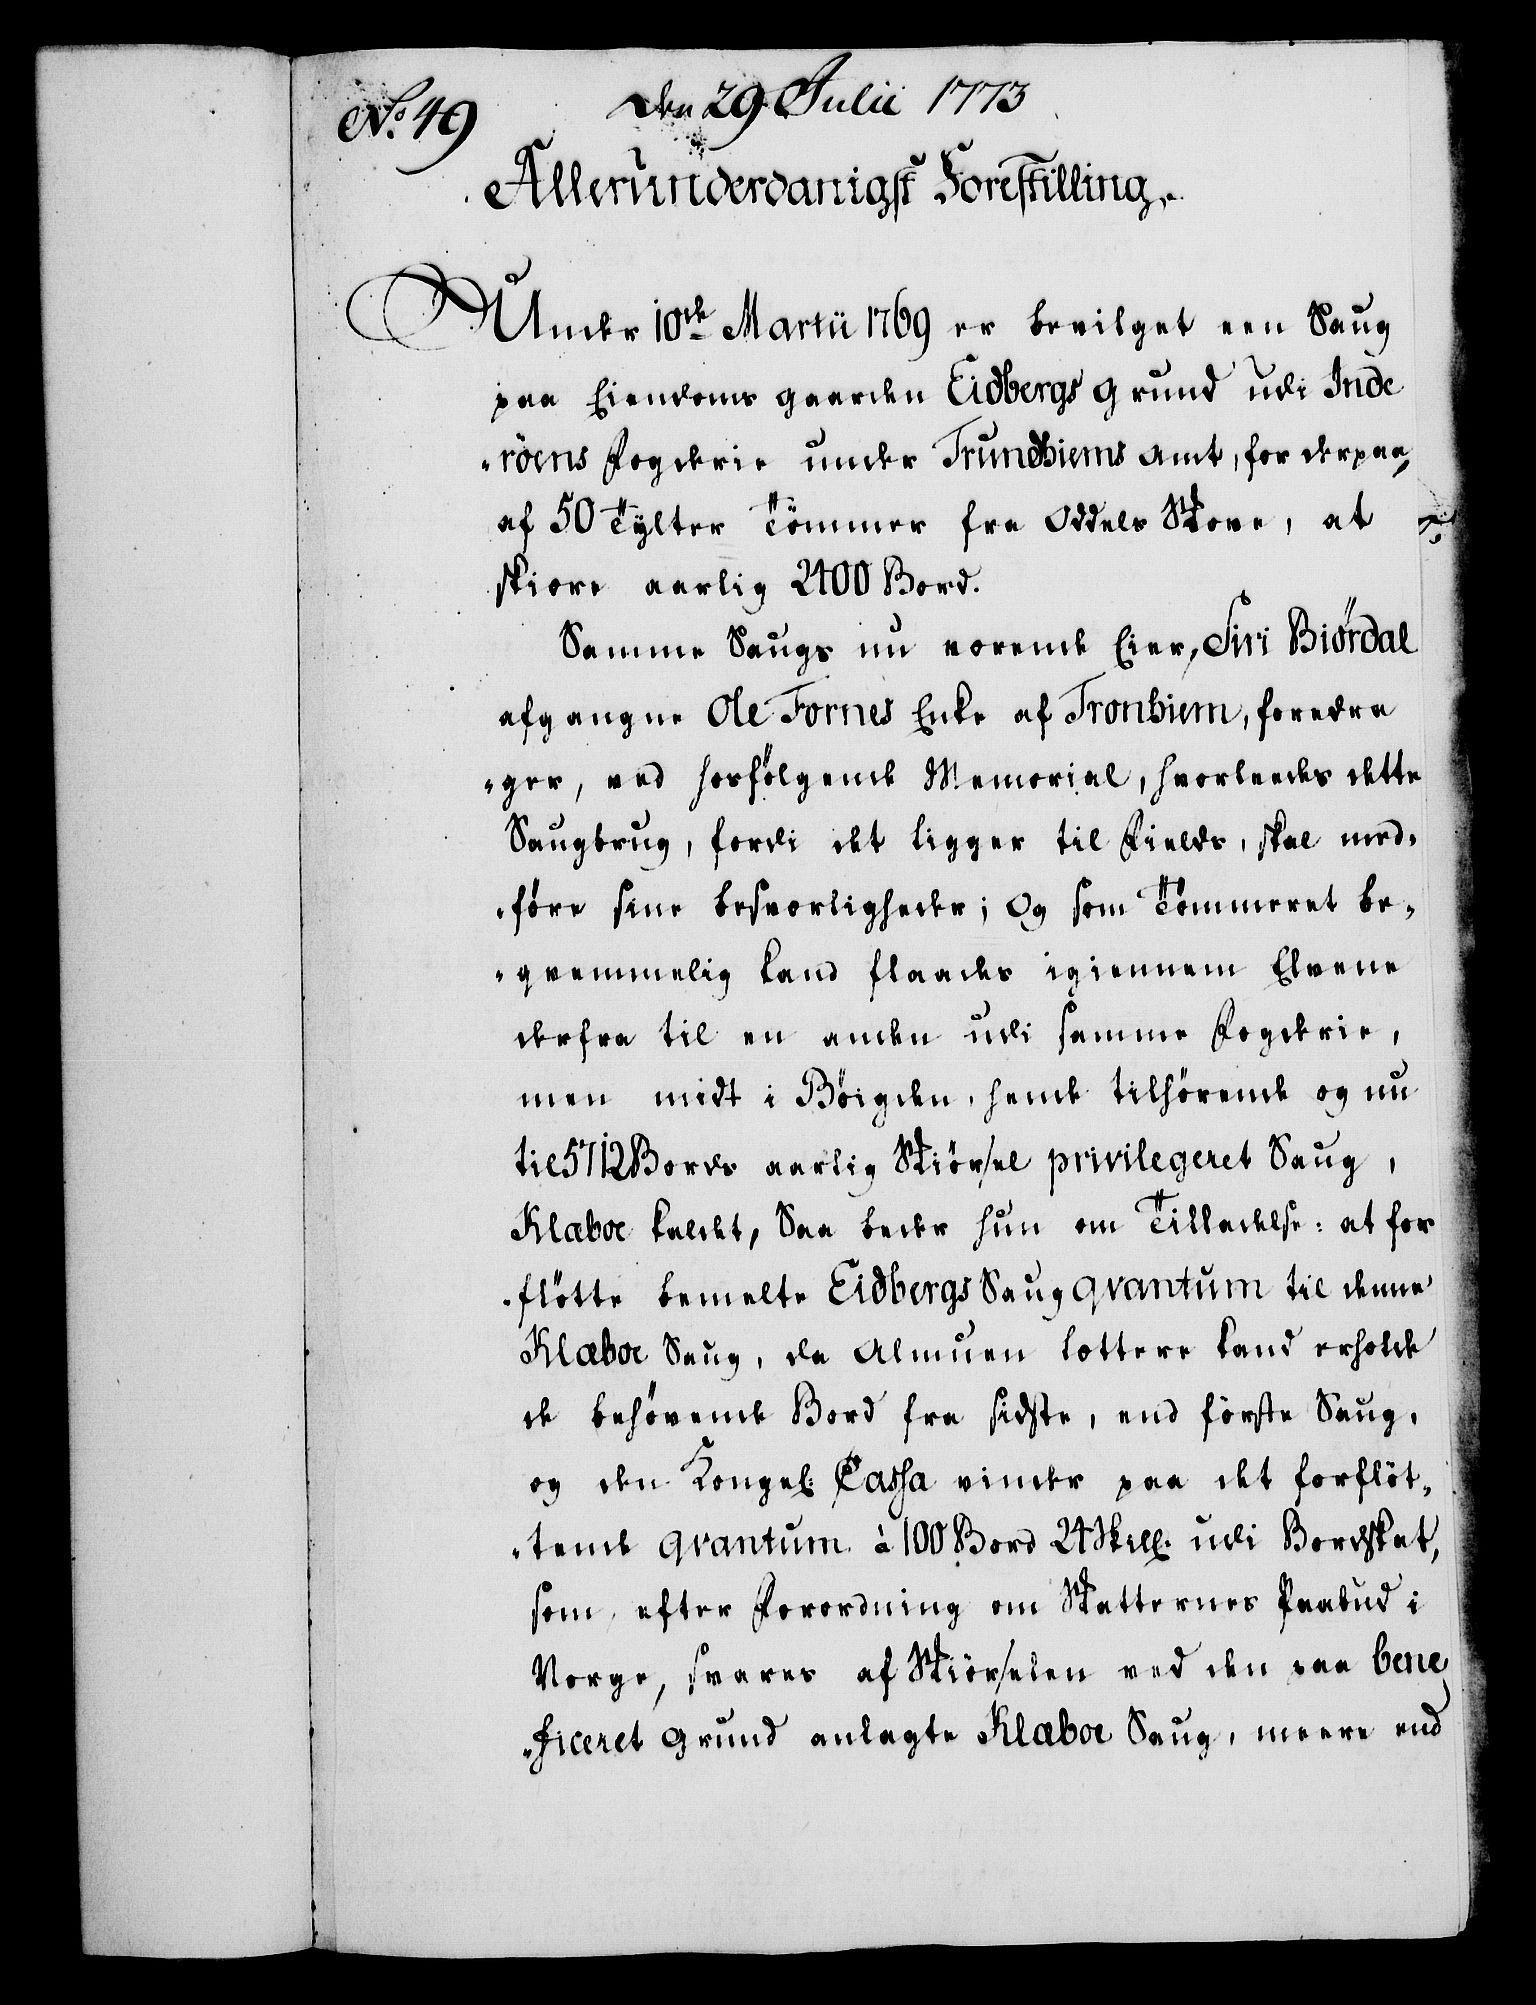 No. 49
Den 29 Julii 1773
Allerunderdanigst Forestilling.
Under 10de Martii 1769 er bevilget een Saug
paa Eiendoms gaarden Eidbergs grund udi Inde
"röens Fogderie under Trundhiems Amt, for derpaa,
af 50 Tylter Tömmer fra Oddels Skove, at
skiære aarlig 2400 Bord.
Samme Saugs nu værende Eier, Siri Biördal
afgangne Ole Fornes Enke af Tronhiem, foredra
"ger, ved hosfölgende Memorial, hvorleedes dette
Saugbrug, fordi det ligger til Fields, skal med-
"före sine besværligheder; Og som Tömmeret be-
"qvemmelig kand flaades igiennem Elvene
derfra til en anden udi samme Fogderie,
men midt i Böigden, hende tilhörende og nu
til 5712 Bords aarlig Skiörsel privilegeret Saug,
Klæboe kaldet, Saa beder hun om Tilladelse: at for
"flötte bemelte Eidbergs Saug qvantum til denne
Klæboe Saug, da Almuen lættere kand erholde
de behövende Bord fra sidste, end förste Saug,
og den Kongel: Cassa vinder paa det forflöt-
"tende qvantum à 100 Bord 24 Skill: udi Bordskat,
som, efter Forordning om Skatternes Paabud i
Norge, svares af Skiörselen ved den paa bene
"ficeret Grund anlagte Klæboe Saug, meere end